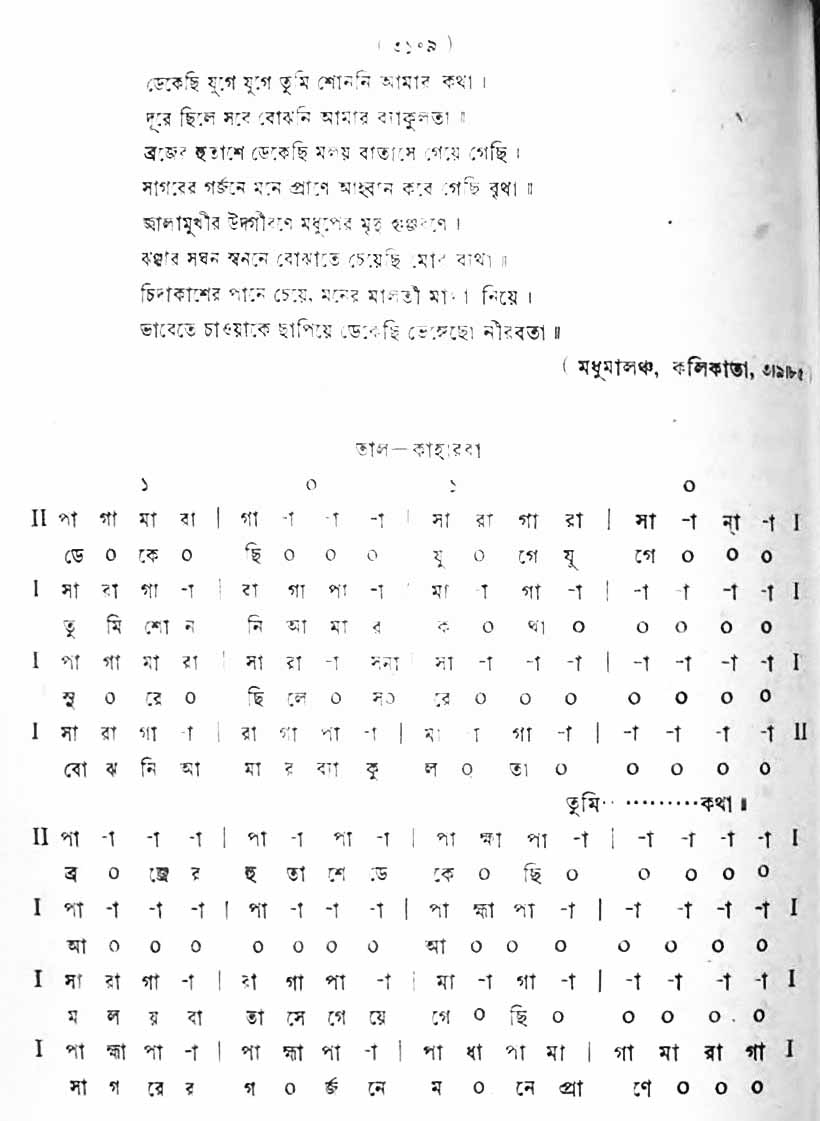 ( ৩১০৯ )
ডেকেছি যুগে যুগে তুমি শোননি আমার কথা ।
দূরে ছিলে সবে বোঝনি আমার ব্যাকুলতা ॥
ব্রজের হুতাশে ডেকেছি মলয় বাতাসে গেয়ে গেছি ।
সাগরের গর্জনে মনে প্রাণে আহ্বান করে গেছি বৃথা ॥
জ্বালামুখীর উদ্গীরণে মধুপের মৃদু গুঞ্জরণে ।
ঝঞ্ঝার সঘন স্বননে বোঝাতে চেয়েছি মোর ব্যথা ॥
চিদাকাশের পানে চেয়ে, মনের মালতী মালা নিয়ে ।
ভাবেতে চাওয়াকে ছাপিয়ে ডেকেছি ভেঙ্গেছো নীরবতা ॥
( মধুমালঞ্চ, কলিকাতা, ৩৷৯৷৮৫ )
তাল – কাহারবা
১ ০ ১ ০
II পা গা মা রা | গা -া -া -া | সা রা গা রা | সা -া ন্া -া I
ডে ০ কে ০ ছি ০ ০ ০ যু ০ গে যু গে ০ ০ ০
I সা রা গা -া | রা গা পা -া | মা -া গা -া | -া -া -া -া I
তু মি শো ন নি আ মা র ক ০ থা ০ ০ ০ ০ ০
I পা গা মা রা | সা রা -া সনা | সা -া -া -া | -া -া -া -া I
সু ০ রে ০ ছি লে ০ স০ রে ০ ০ ০ ০ ০ ০ ০
I সা রা গা -া | রা গা পা -া | মা -া গা -া | -া -া -া -া II
বো ঝ নি আ মা র ব্যা কু ল ০ তা ০ ০ ০ ০ ০
তুমি· ··········কথা ॥
II পা -া -া -া | পা -া পা -া | পা হ্মা পা -া | -া -া -া -া I
ব্র ০ জ্রে র হু তা শে ডে কে ০ ছি ০ ০ ০ ০ ০
I পা -া -া -া | পা -া -া -া | পা হ্মা পা -া | -া -া -া -া I
আ ০ ০ ০ ০ ০ ০ ০ আ ০ ০ ০ ০ ০ ০ ০
I সা রা গা -া | রা গা পা -া | মা -া গা -া | -া -া -া -া I
ম ল য় বা তা সে গে য়ে গে ০ ছি ০ ০ ০ ০ ০
I পা হ্মা পা -া | পা হ্মা পা -া | পা ধা পা মা | গা মা রা গা I
সা গ রে র গ ০ র্জ নে ম ০ নে প্রা ণে ০ ০ ০